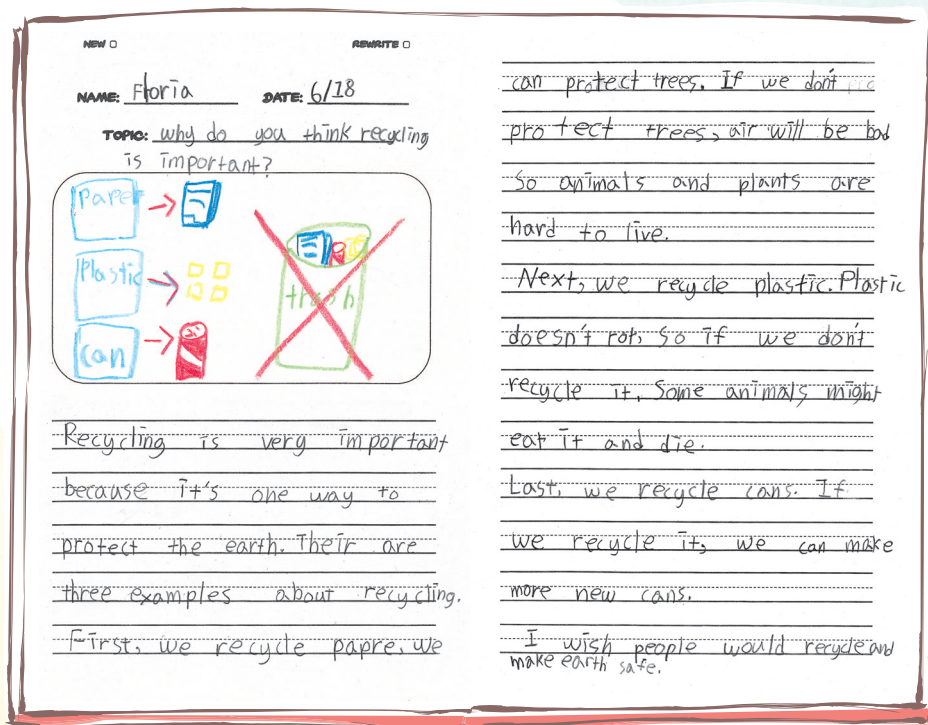 NEW
REWRITE
NAME: Floria
DATE: 6/18
TOPIC: why do you think recycling
is important?
Paper
Plastic
can
trash
Recycling is very important
because it's one way to
protect the earth. Their are
three examples about recycling.
First, we recycle papre, we
can protect trees. If we don't
protect trees, air will be bad
so animals and plants are
hard to live.
Next, we recycle plastic. Plastic
doesn't rot, so if we don't
recycle it, Some animals might
eat it and die.
Last, we recycle cans. If
we recycle it, we can make
more new cans.
I wish people would recycle and
make earth safe.